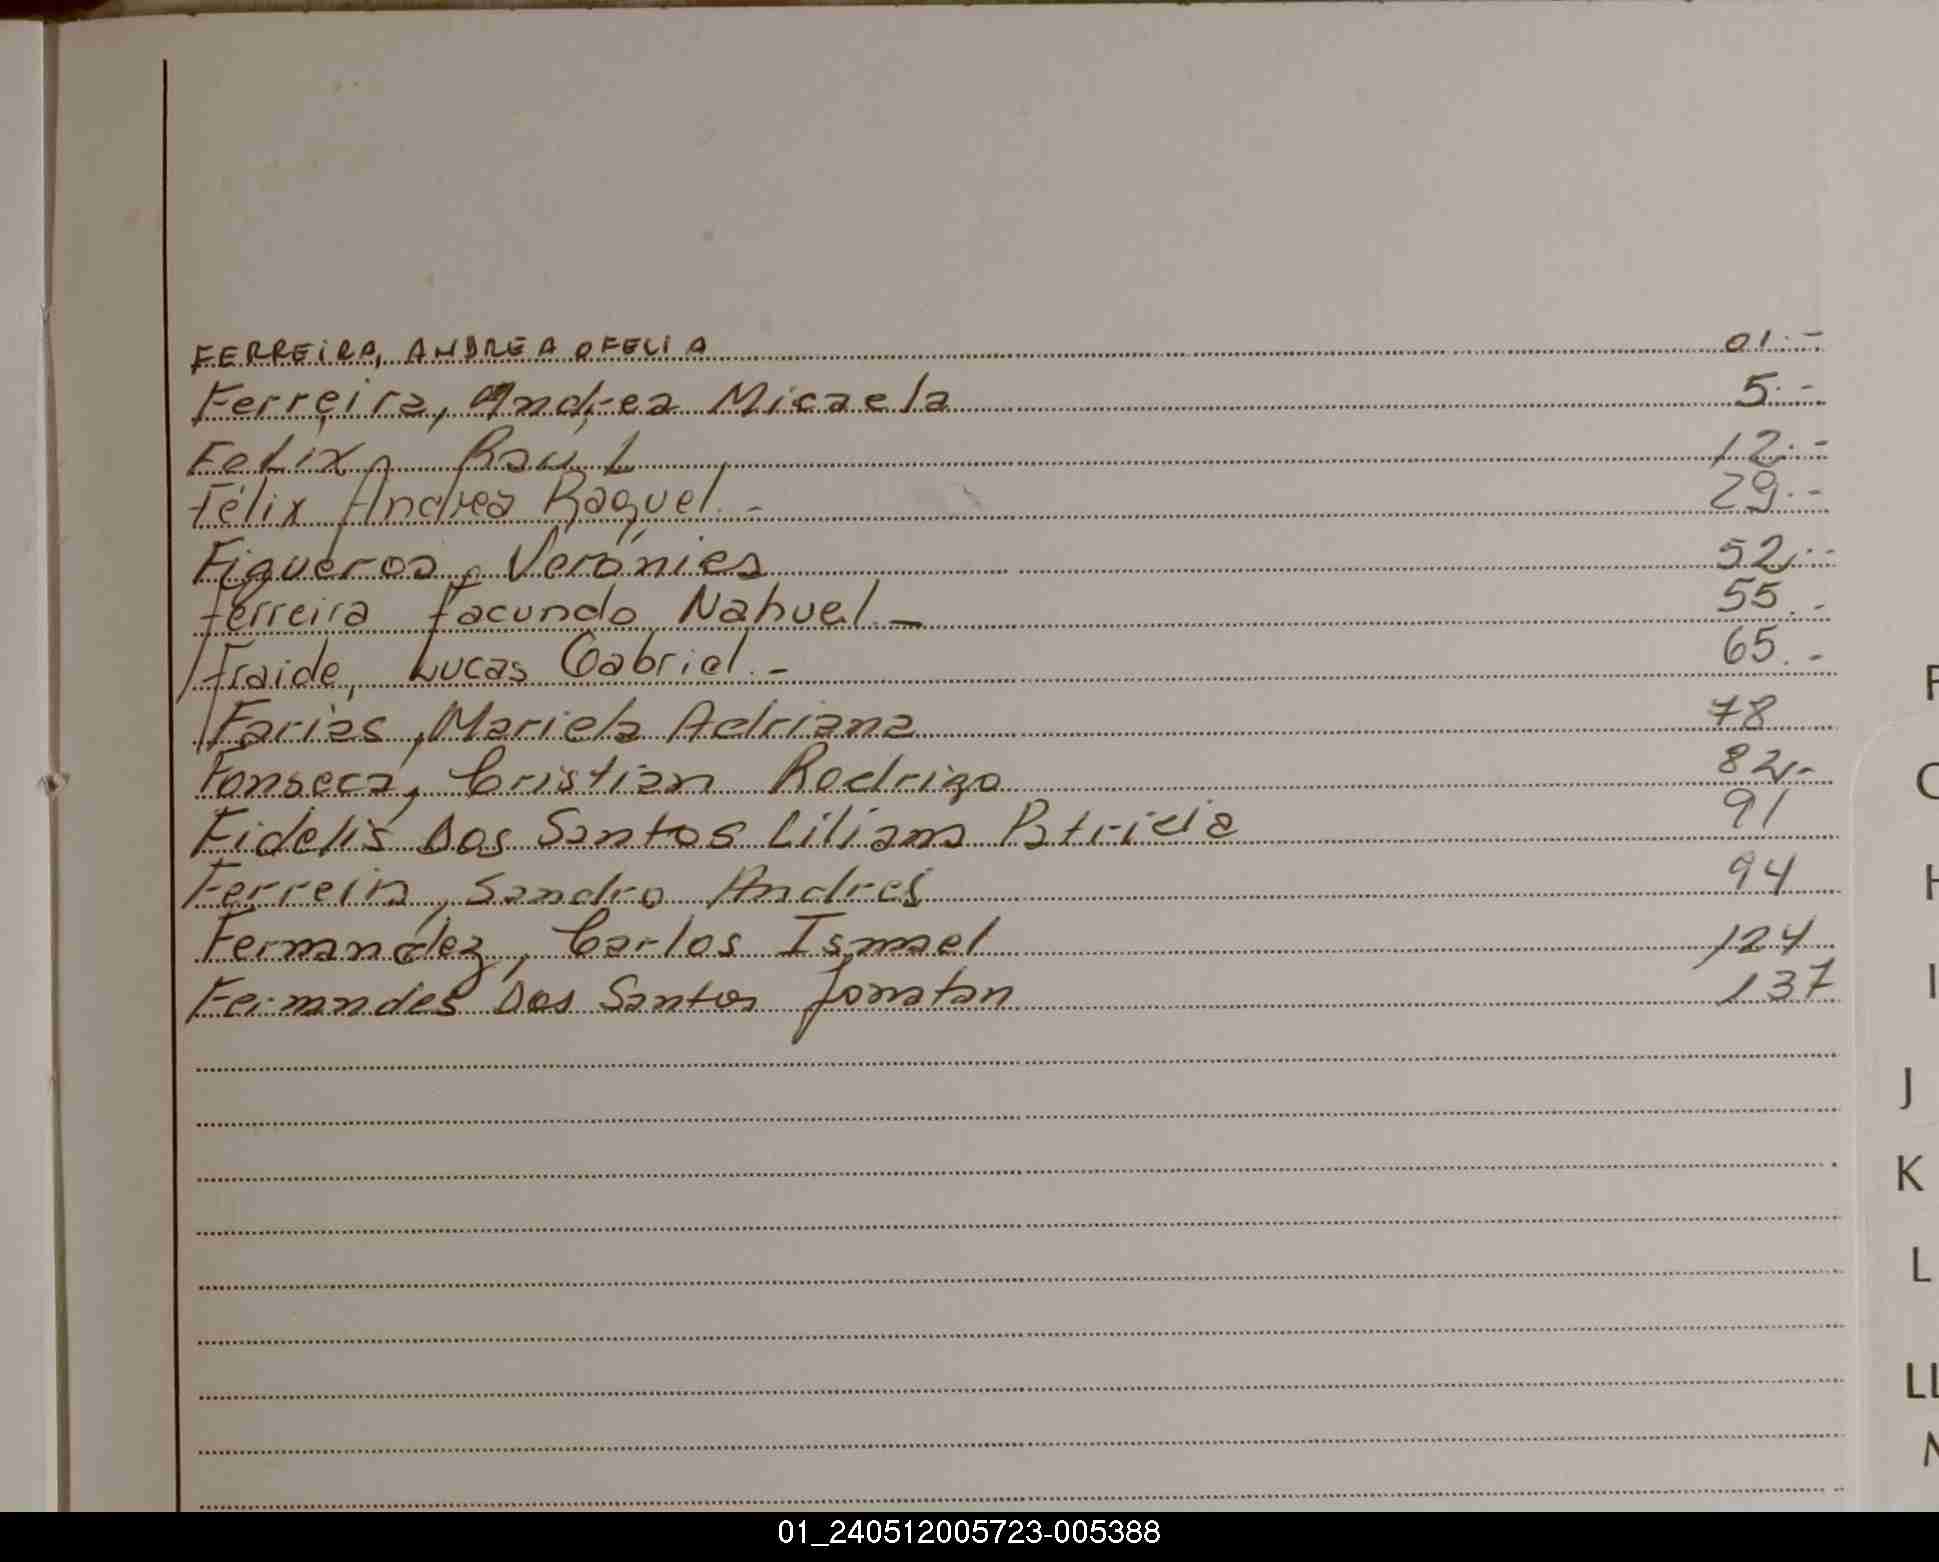 FERREIRA, ANDREA OFELIA 01.-
Ferreira, Andrea Micaela 5.-
Felix, Raul 12.-
Félix Andrea Raquel.- 29.-
Figueroa, Verónica 52.-
Ferreira Facundo Nahuel.- 55.-
Fraide, Lucas Gabriel.- 65.-
Farias, Mariela Adriana 78
Fonseca, Cristian Rodrigo 82.-
Fidelis Dos Santos Liliana Patricia 91
Ferreira, Sandro Andres 94
Fernandez, Carlos Ismael 124
Fernandes Dos Santos Jonatan 137
H
I
J
K
L
01_240512005723-005388